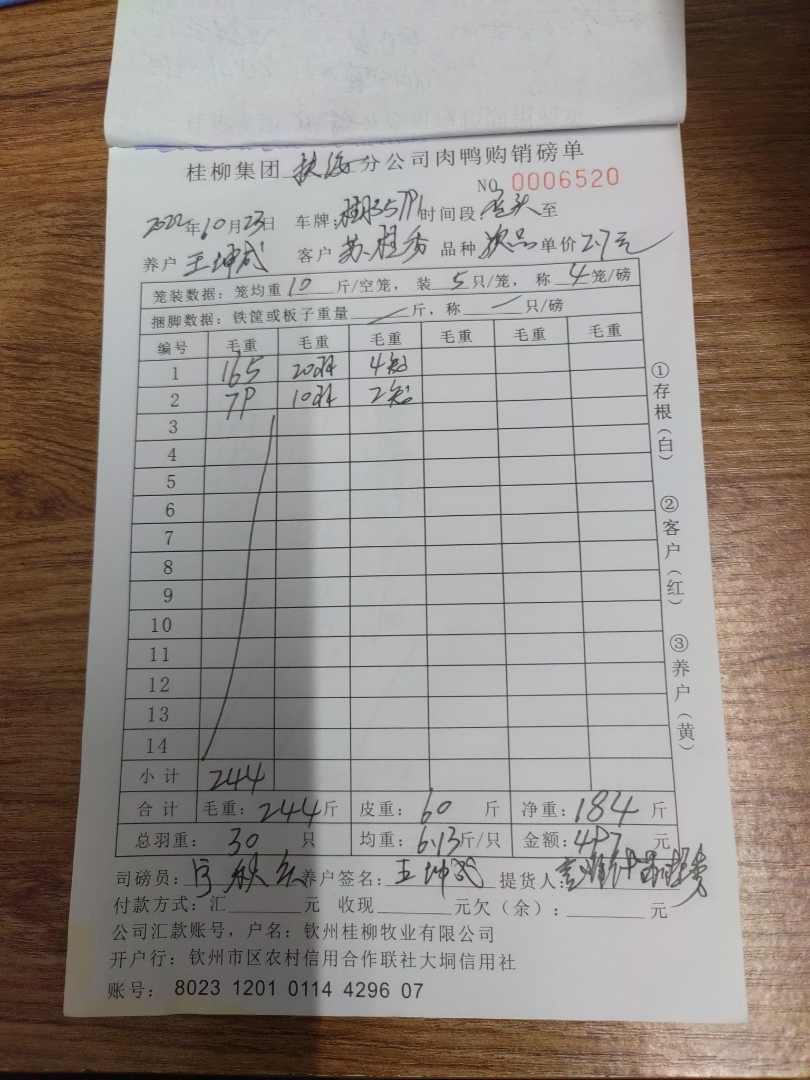 桂柳集团 扶海 分公司肉鸭购销磅单
NO 0006520
2022年10月23日 车牌: 时间段 至
养户 王坤武 客户 苏桂秀 品种 次品 单价 2.7元
笼装数据：笼均重 10 斤/空笼， 装 5 只/笼， 称 4 笼/磅
捆脚数据：铁筐或板子重量 / 斤，称 / 只/磅
编号 毛重 毛重 毛重 毛重 毛重 毛重
1 165 20羽 4笼
2 79 10羽 2笼
3
4
5
6
7
8
9
10
11
12
13
14
小计 244
合计 毛重：244斤 皮重：60 斤 净重：184 斤
总羽重： 30 只 均重：6.13斤/只 金额：497 元
司磅员： 养户签名：王坤武 提货人：
付款方式：汇 元 收现 元欠（余）： 元
公司汇款账号，户名：钦州桂柳牧业有限公司
开户行：钦州市区农村信用合作联社大垌信用社
账号： 8023 1201 0114 4296 07
①存根（白）
②客户（红）
③养户（黄）